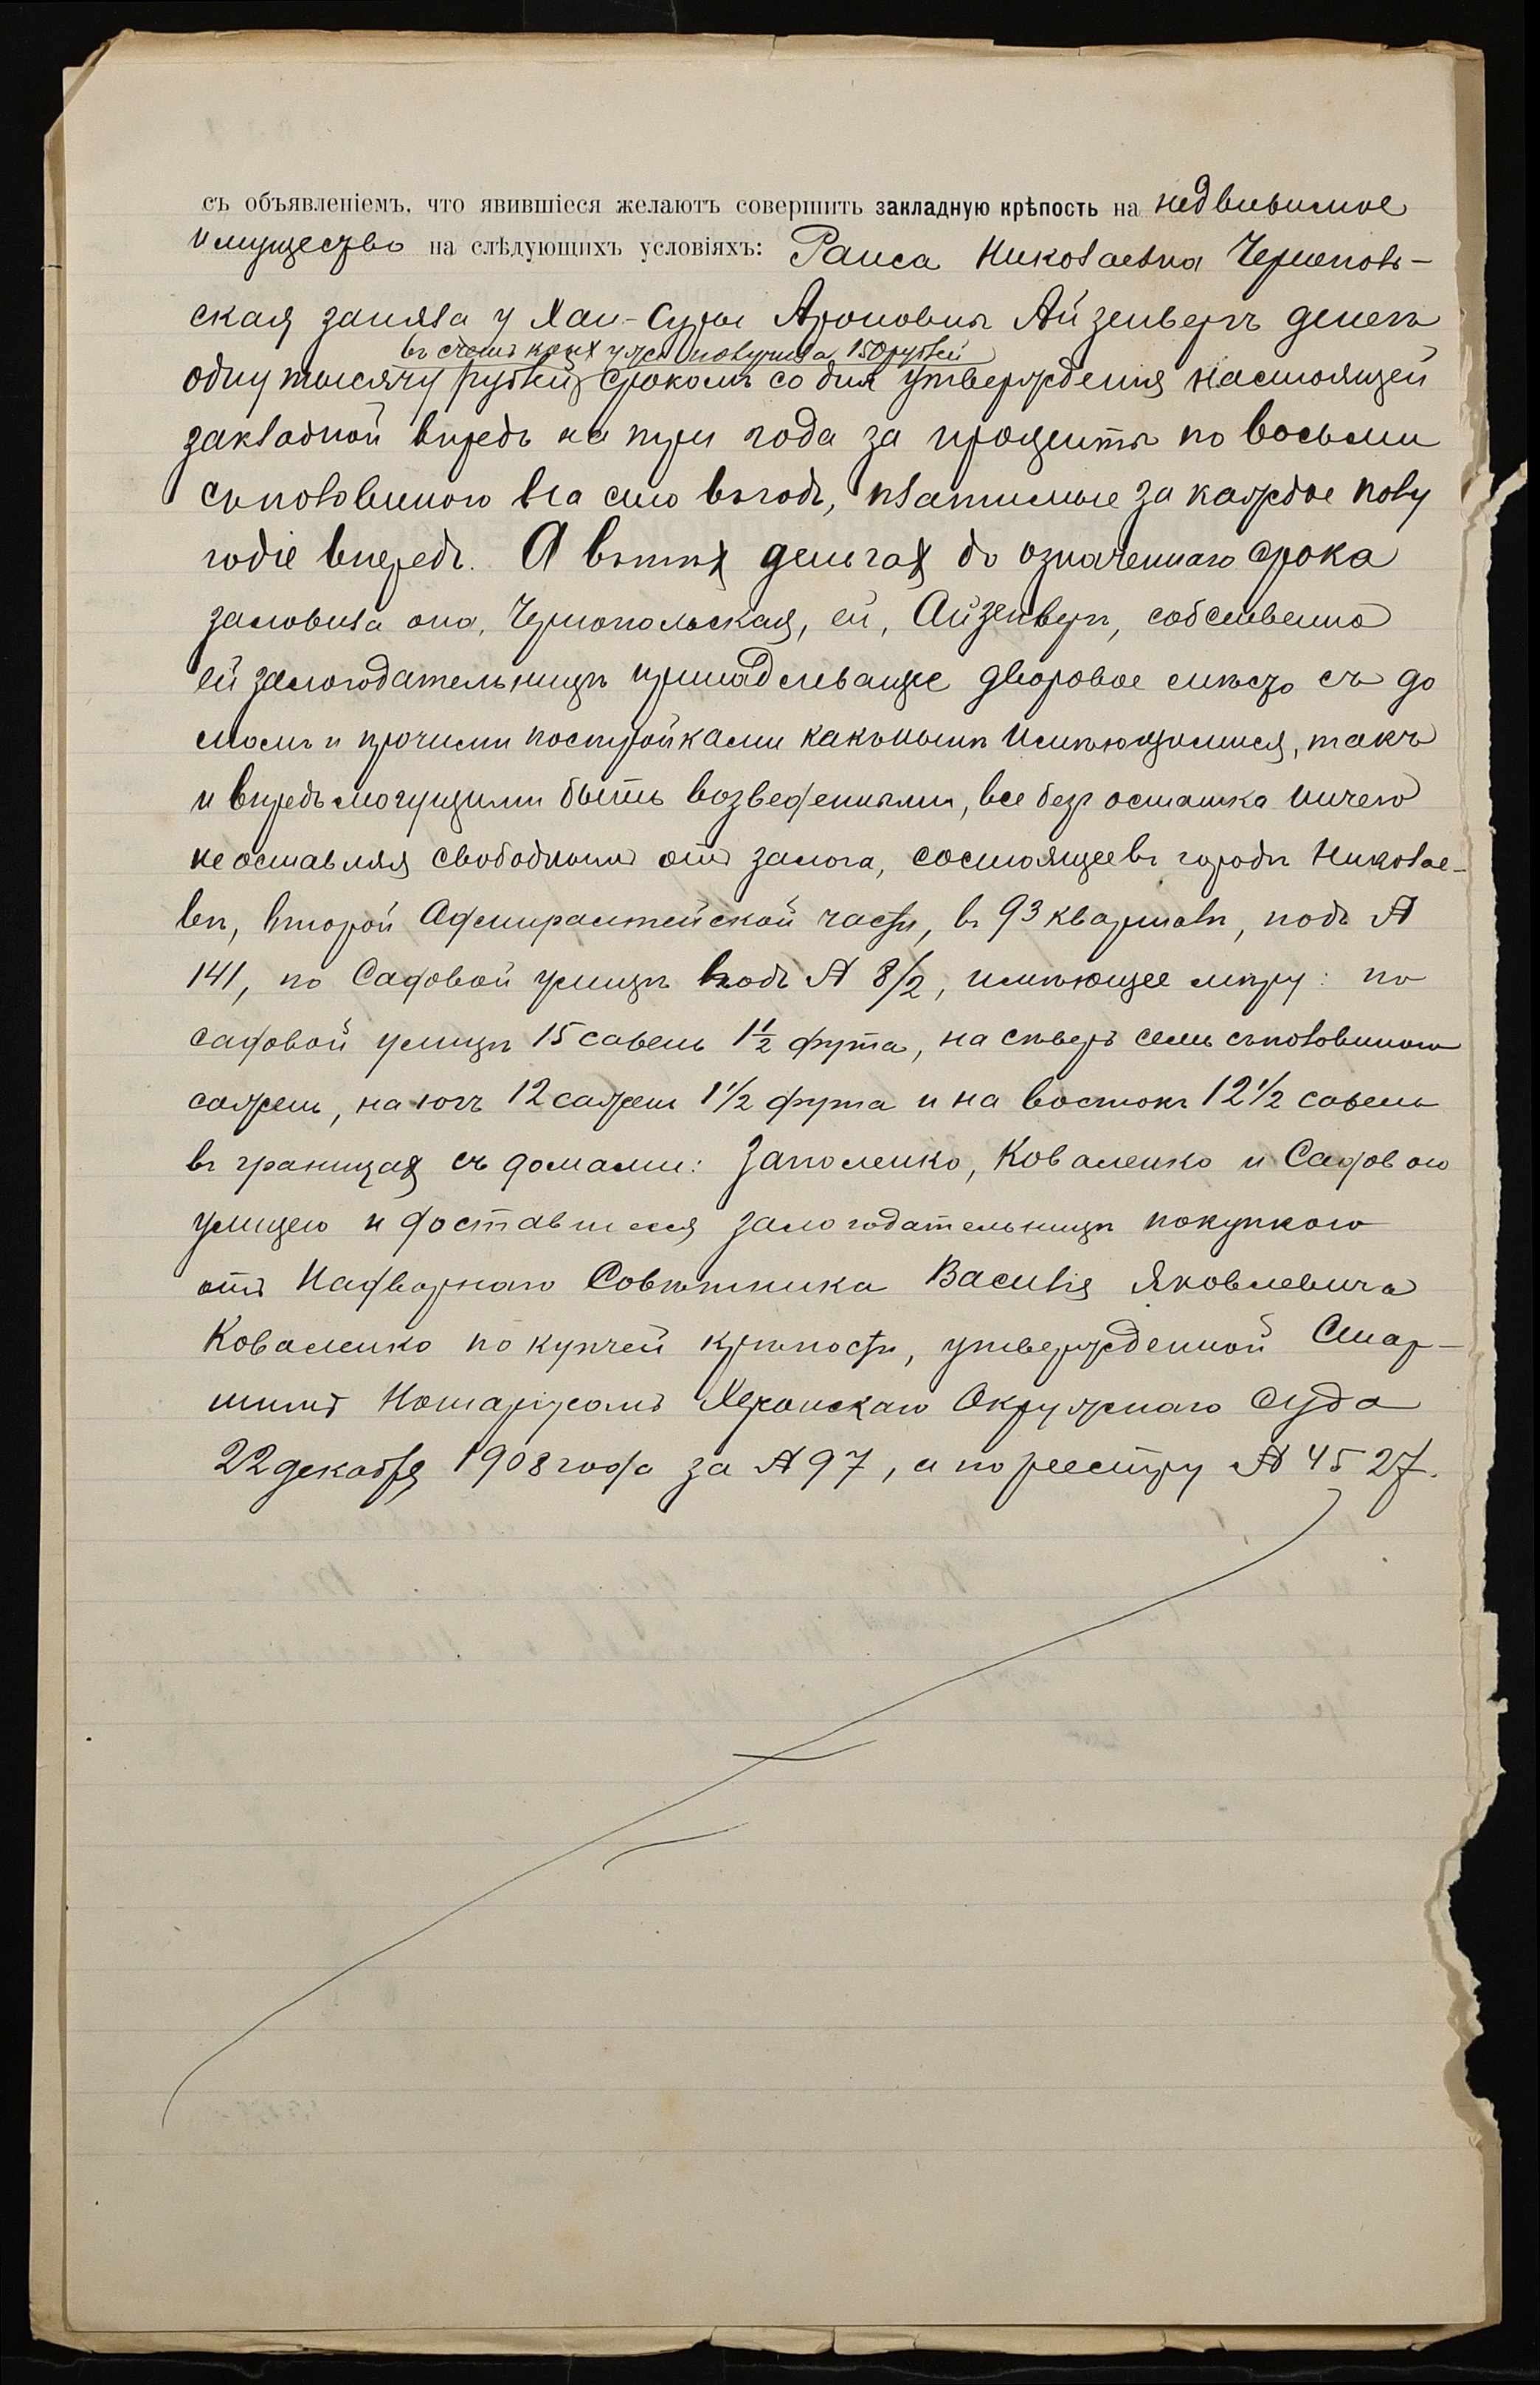 съ объявленіемъ, что явившіеся желаютъ совершить закладную крѣпость на недвижимое
имущество на слѣдующихъ условіяхъ: Раиса Николаевна Чернополь-
ская заняла у Хаи-Суры Ароновны Айзенбергъ денегъ
въ счетъ коихъ уже получила 150 рублей
одну тысячу рублей срокомъ со дня утвержденія настоящей
закладной впредь на три года за проценты по восьми
съ половиною на сто въ годъ, платимые за каждое полу
годіе впередъ. А въ тѣхъ деньгахъ до означеннаго срока
заложила она, Чернопольская, ей, Айзенбергъ, собственно
ей залогодательницѣ принадлежащее дворовое мѣсто съ до
момъ и прочими постройками какъ нынѣ имѣющимися, такъ
и впредь могущими быть возведенными, все безъ остатка ничего
не оставляя свободнымъ отъ залога, состоящее въ городѣ Николае-
вѣ, второй Адмиралтейской части, въ 93 кварталѣ, подъ №
141, по Садовой улицѣ подъ № 8/2, имѣющее мѣру: по
садовой улицѣ 15 сажень 1 1/2 фута, на сѣверъ семь съ половиною
сажень, на югъ 12 сажень 1 1/2 фута и на востокъ 12 1/2 сажень
въ границахъ съ домами: Заполенко, Коваленко и Садовою
улицею и доставшееся залогодательницѣ покупкою
отъ Надворнаго Совѣтника Василія Яковлевича
Коваленко по купчей крѣпости, утвержденной Стар-
шимъ Нотаріусомъ Херсонскаго Окружнаго Суда
22 декабря 1908 года за № 97, а по реестру № 4527.